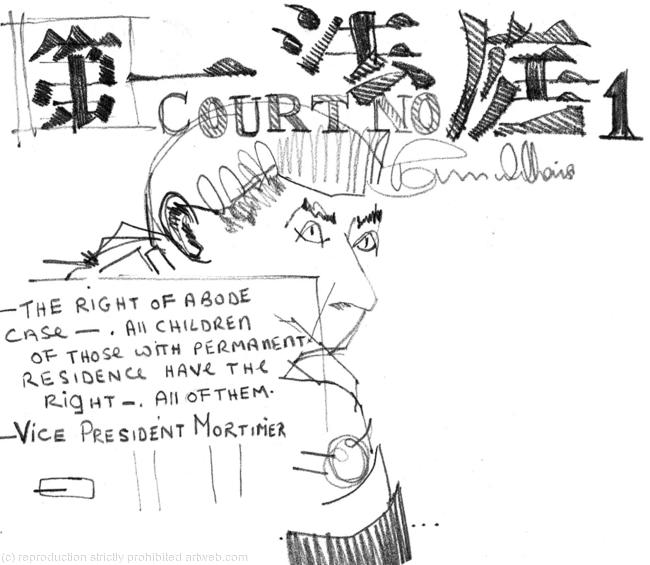 第一法庭
COURT NO 1
—THE RIGHT OF ABODE
CASE — . All CHILDREN
OF THOSE WITH PERMANENT
RESIDENCE HAVE THE
RigHT —. All OF THEM.
—VICE PRESIDENT MORTIMER
(c) reproduction strictly prohibited artweb.com